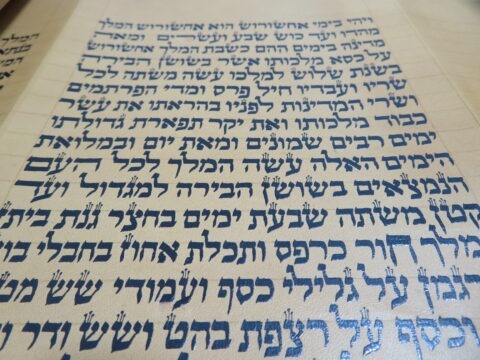 ויהי בימי אחשורוש הוא אחשורוש המלך
מהדו ועד כוש שבע ועשרים ומאה
מדינה בימים ההם כשבת המלך אחשורוש
על כסא מלכותו אשר בשושן הבירה
בשנת שלוש למלכו עשה משתה לכל
שריו ועבדיו חיל פרס ומדי הפרתמים
ושרי המדינות לפניו בהראתו את עשר
כבוד מלכותו ואת יקר תפארת גדולתו
ימים רבים שמונים ומאת יום ובמלואת
הימים האלה עשה המלך לכל העם
הנמצאים בשושן הבירה למגדול ועד
קטן משתה שבעת ימים בחצר גנת בית
מלך חור כרפס ותכלת אחוז בחבלי בו
רגמן על גלילי כסף ועמודי שש מט
וכסף על רצפת בהט ושש ודר ו